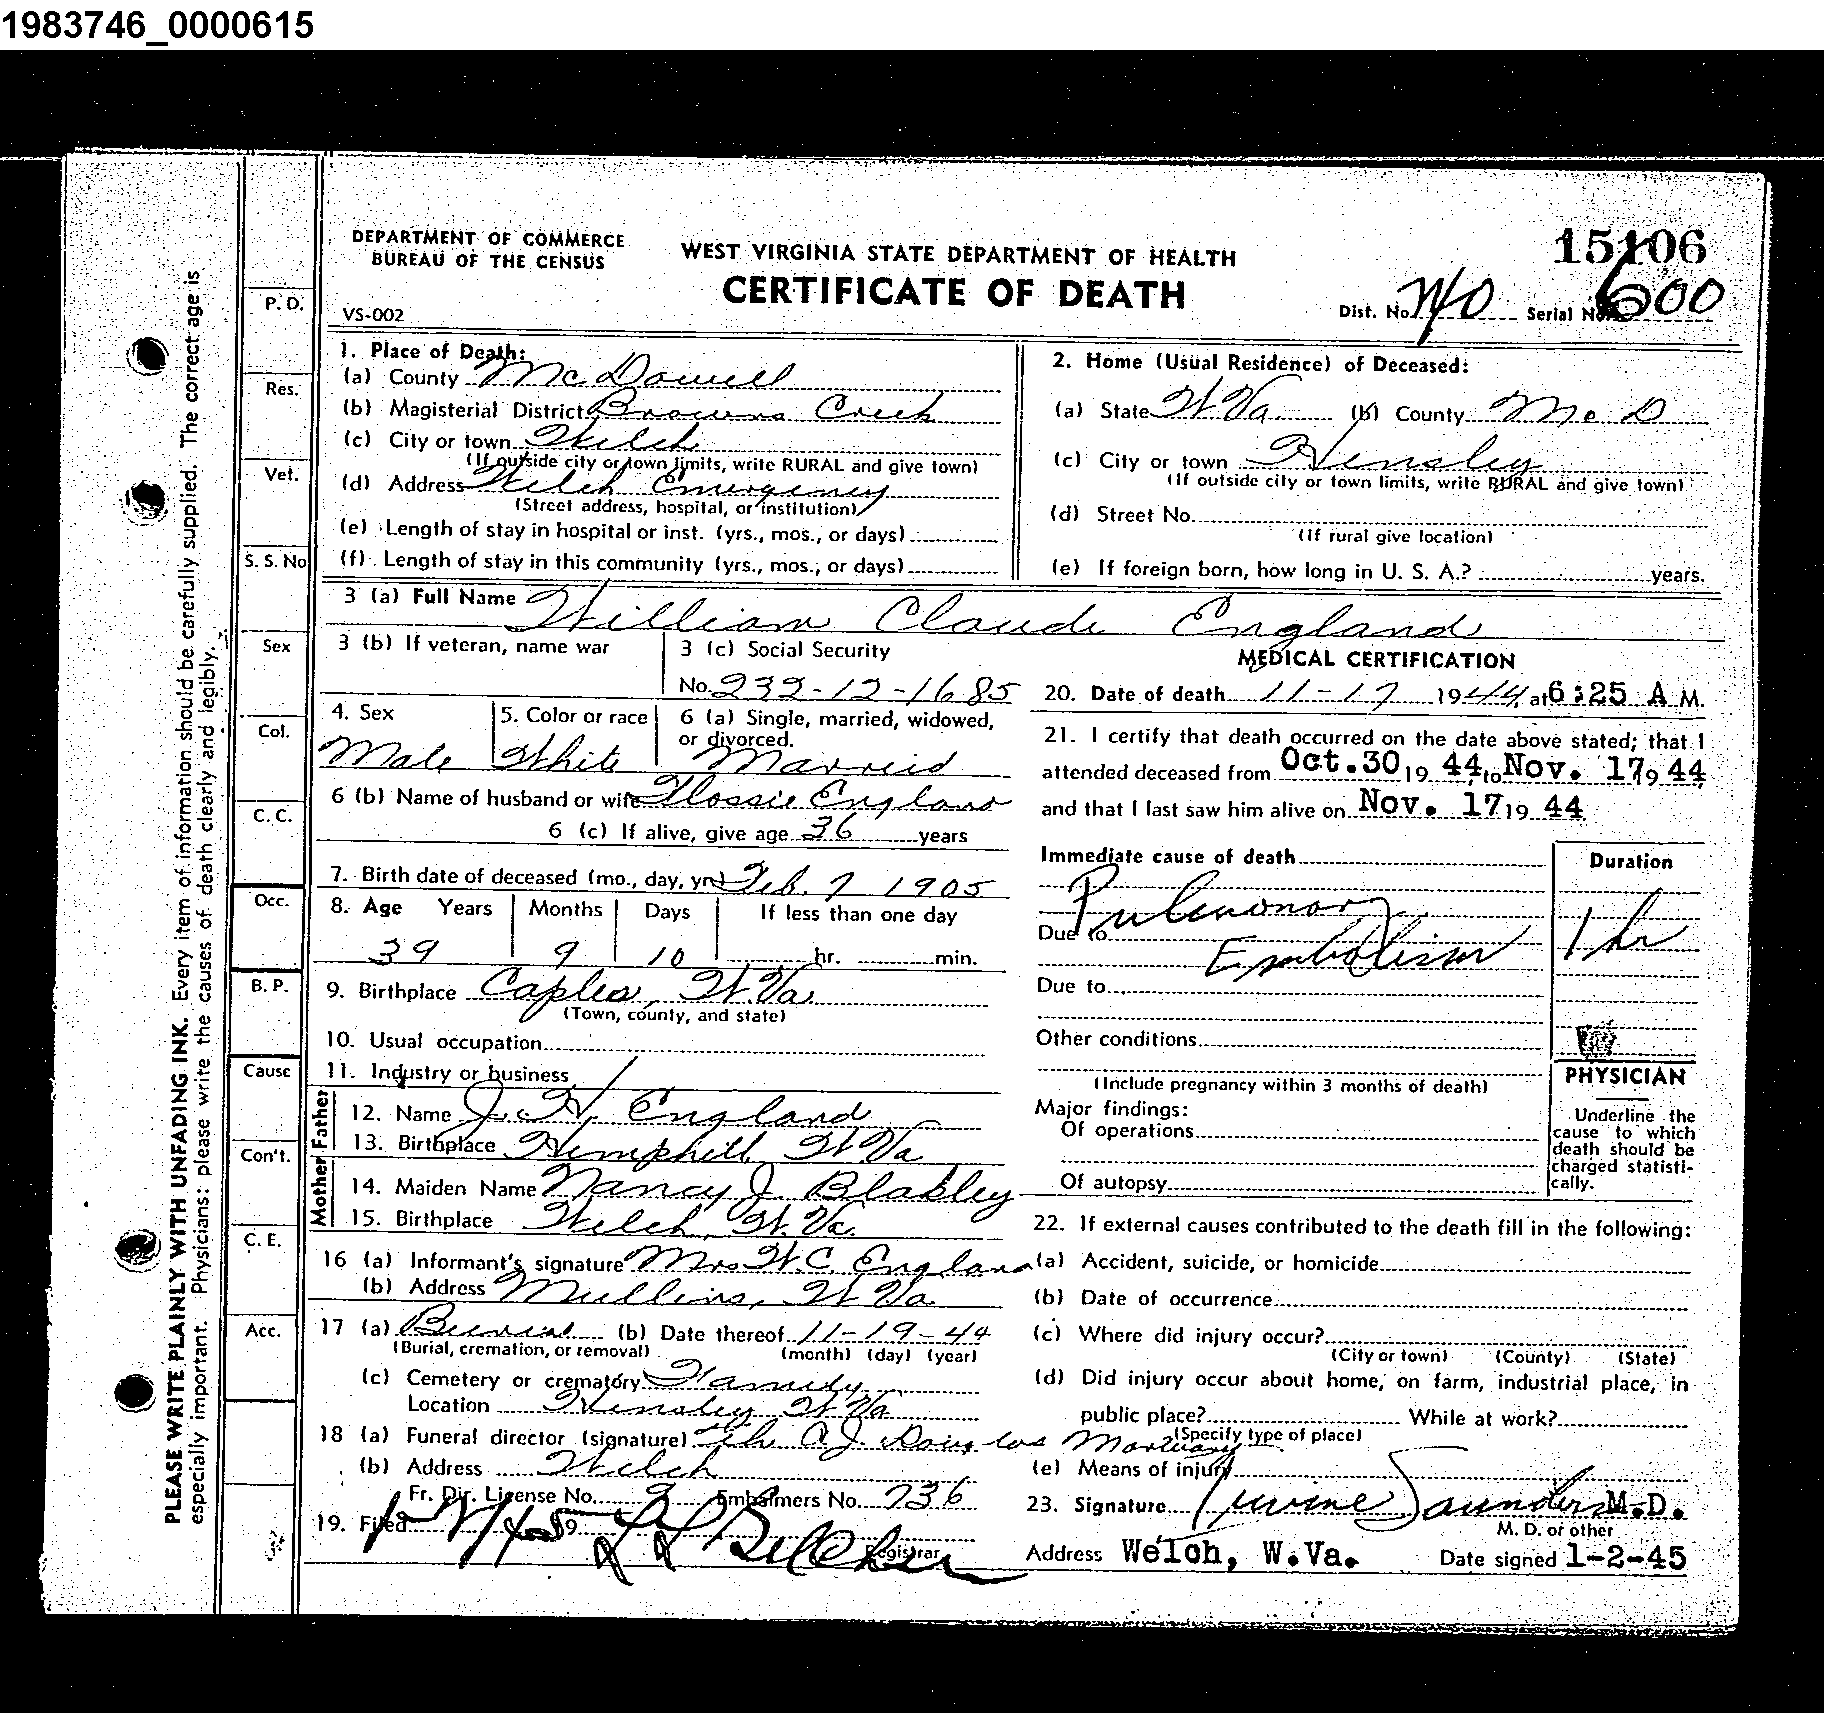 1983746_0000615
DEPARTMENT OF COMMERCE
BUREAU OF THE CENSUS
VS-002
WEST VIRGINIA STATE DEPARTMENT OF HEALTH
CERTIFICATE OF DEATH
15106
Dist. No. Serial No. 600
PLEASE WRITE PLAINLY WITH UNFADING INK. Every item of information should be carefully supplied. The correct age is
especially important. Physicians: please write the causes of death clearly and legibly.
P. D.
Res.
Vet.
S. S. No
Sex
Col.
C. C.
Occ.
B. P.
Cause
Con't.
C. E.
Acc.
1. Place of Death:
(a) County McDowell
(b) Magisterial District Browns Creek
(c) City or town Welch
(If outside city or town limits, write RURAL and give town)
(d) Address Welch Emergency
(Street address, hospital, or institution)
(e) Length of stay in hospital or inst. (yrs., mos., or days)
(f) Length of stay in this community (yrs., mos., or days)
2. Home (Usual Residence) of Deceased:
(a) State W Va (b) County Mc D
(c) City or town Hensley
(If outside city or town limits, write RURAL and give town)
(d) Street No.
(If rural give location)
(e) If foreign born, how long in U. S. A.? years.
3 (a) Full Name William Claude England
3 (b) If veteran, name war
3 (c) Social Security
No. 232-12-1685
4. Sex
Male
5. Color or race
White
6 (a) Single, married, widowed,
or divorced.
Married
6 (b) Name of husband or wife Flossie England
6 (c) If alive, give age 36 years
7. Birth date of deceased (mo., day, yr.) Feb. 7 1905
8. Age Years Months Days If less than one day
39 9 10 hr. min.
9. Birthplace Caples, W.Va.
(Town, county, and state)
10. Usual occupation
11. Industry or business
Father
12. Name J. H. England
13. Birthplace Hemphill W Va
Mother
14. Maiden Name Nancy J Blakley
15. Birthplace Welch, W. Va.
16 (a) Informant's signature Mrs W. C. England
(b) Address Mullins, W Va.
17 (a) Burial (b) Date thereof 11-19-44
(Burial, cremation, or removal) (month) (day) (year)
(c) Cemetery or crematory Family
Location Hensley W Va
18 (a) Funeral director (signature) The A. J. Douglas Mortuary
(b) Address Welch
Fr. Dir. License No. Embalmers No. 736
19. Filed 19 Belcher
Registrar
MEDICAL CERTIFICATION
20. Date of death 11-17 1944, at 6:25 A M.
21. I certify that death occurred on the date above stated; that I
attended deceased from Oct. 30, 19 44, to Nov. 17, 19 44
and that I last saw him alive on Nov. 17, 19 44
Immediate cause of death
Duration
Pulmonary
Due to
Embolism
1 hr
Due to
Other conditions
(Include pregnancy within 3 months of death)
Major findings:
Of operations
Of autopsy
PHYSICIAN
Underline the
cause to which
death should be
charged statisti-
cally.
22. If external causes contributed to the death fill in the following:
(a) Accident, suicide, or homicide
(b) Date of occurrence
(c) Where did injury occur?
(City or town) (County) (State)
(d) Did injury occur about home, on farm, industrial place, in
public place? While at work?
(Specify type of place)
(e) Means of injury
23. Signature Saunders M.D.
M. D. or other
Address Welch, W.Va. Date signed 1-2-45